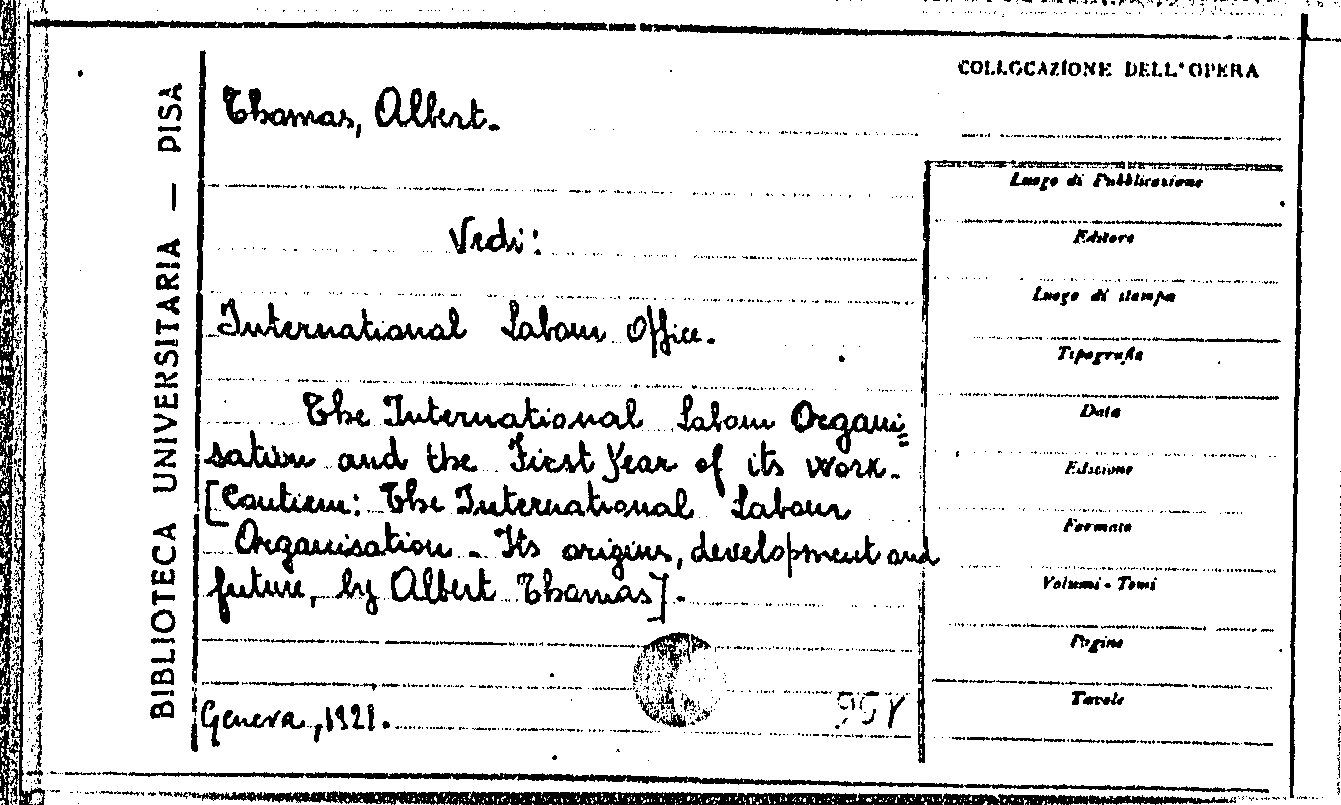 COLLOCAZIONE DELL'OPERA
BIBLIOTECA UNIVERSITARIA — PISA
Thomas, Albert.
Vedi:
International Labour Office.
The International Labour Organi=
sation and the First Year of its work.
[Contiene: The International Labour
Organisation - Its origins, development and
future, by Albert Thomas].
Geneva, 1921.
Luogo di Pubblicazione
Editore
Luogo di stampa
Tipografia
Data
Edizione
Formato
Volumi - Tomi
Pagine
Tavole